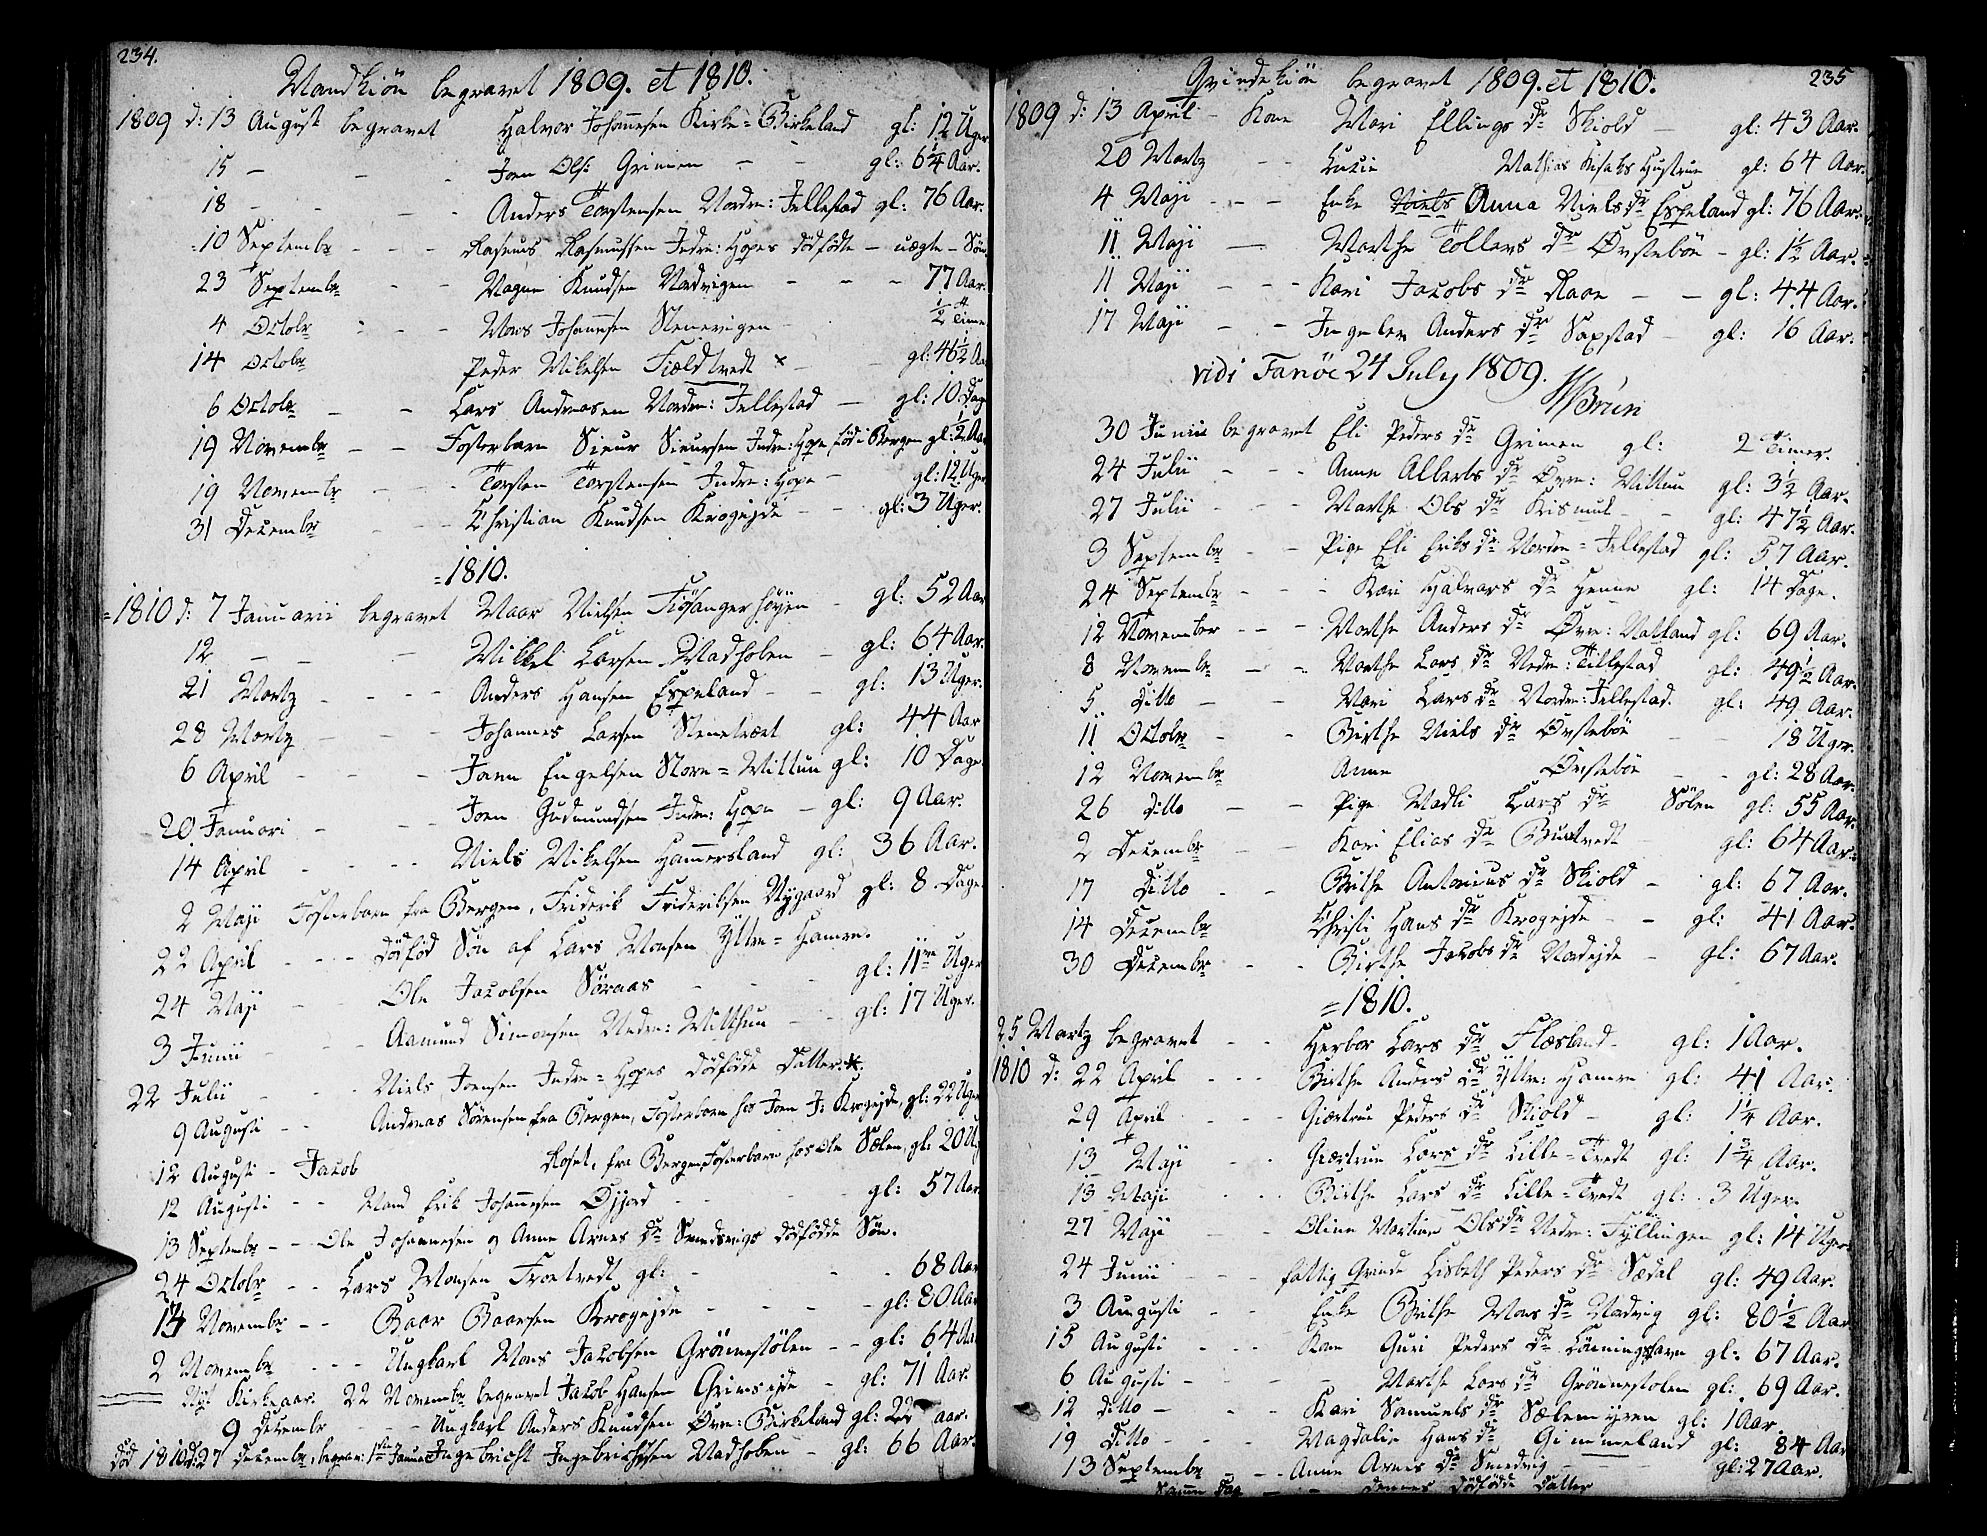 234.
Mandkiön begravet 1809. et 1810.
1809 d: 13 August begravet Halvor Johannesen Kirke=Birkeland gl: 12 Uger
15 - - - Joen Ols: Grimen - - gl: 6 1/4 Aar.
18 - - - Anders Torstensen Nordre: Jellestad gl: 76 Aar.
10 Septembr - - - Rasmus Rasmussen Indre: Hopes dödfödte - uægte - Sön
23 Septembr - - Mogne Knudsen Nordvigen - - - 77 Aar.
4 Octobr - - - Mons Johannesen Stenevigen - 1/2 Time
14 Octobr Peder Mikelsen Fieldtvedt x - gl: 46 1/2 Aar
6 Octobr - - Lars Andreasen Nordre: Jellestad - gl: 10 Dage
19 Novembr - - Fosterbarn Siur Siursen Indre: Hope föd i Bergen gl: 1/2 Aar
19 Novembr - - - Torsten Torstensen Indre: Hope - gl: 12 Uger
31 Decembr - - - Christian Knudsen Krogeide - - gl: 3 Uger.
=1810.
=1810 d: 7 Januarii begravet Naar Nielsen Fiösangerhöyen - gl: 52 Aar
12 - - - Mikkel Larsen Madsholen - gl: 64 Aar.
21 Martz - - - Anders Hansen Espeland - - gl: 13 Uger.
28 Martz - - - Johannes Larsen Stenetvæt gl: 44 Aar
6 April - - - Jann Engelsen Store=Mittun gl: 10 Dage
20 Januari - - - Joen Gudmundsen Indre: Hope - gl: 9 Aar.
14 April - - - Niels Mikelsen Hammersland gl: 36 Aar.
2 Maji Fosterbarn fra Bergen, Friderik Frideriksen Nygaard gl: 8 Dage
22 April - - - dödföd Sön af Lars Monsen Yttre=Hamre.
24 Maji - - Ole Jacobsen Söraas - - - gl: 11 Uger
3 Junii - - - Aamund Simonsen Nedre: Mitthun - - gl: 17 Uger.
22 Julii - - Niels Joensen Indre=Hopes dödfödde Datter.*.
9 Augusti - - Andreas Sörensen fra Bergen, Fosterbarn hos Joen J: Krogeide, gl: 22 Uger
12 Augusti - Jacob Roset, fra Bergen Fosterbarn hos Ole Sælen, gl: 20 U:
12 Augusti - - Mand Erik Johannesen Öyjord - - - gl: 57 Aar
13 Septembr - - Ole Johannesen og Anne Arnes Dr Smedsvigs dödfödde Sön.
24 Octobr - - Lars Monsen Troetvedt gl: - - - 68 Aar
13 Novembr - - Baar Baarsen Krogeide - - - - gl: 80 Aar
2 Novembr - - - Ungkarl Mons Jacobsen Grönnestölen - - gl: 64 Aar
Nyt Kirkeaar. 22 Novembr begravet Jacob Hansen Grimseide - gl: 71 Aar.
9 Decembr - - - Ungkarl Anders Knudsen Övre: Birkeland gl: 22 aar.
död 1810 d: 27 Decembr, begrav: 1ste Januar Ingebricht Ingebrichtsen Madsholen - gl: 66 Aar.
235
Qvindekiön begravet 1809. et 1810.
1809 d: 13 April - Kone Mari Ellings dr Skiold - gl: 43 Aar.
20 Martz - - Lucie Mathias Kisaks Hustrue gl: 64 Aar.
4 Maji - - - Enke Niels Anna Niels dr Espeland gl: 76 Aar.
11 Maji - - Marthe Tollevs dr Övstebön - gl: 1 1/2 Aar.
11 Maji - - - Kari Jacobs dr Raae - - gl: 44 Aar.
17 Maji - - Ingeler Anders dr Sapstad - gl: 16 Aar.
vidi Fanöe 24 July 1809. Brun
30 Junii begravet Eli Peders dr Grimen gl: 2 Timer.
24 Julii - - - Anne Allerts dr Övre: Mittun gl: 3 1/2 Aar.
27 Julii - - - Marthe Ols dr Krismul - - gl: 47 1/2 Aar.
3 Septembr - - Pige Eli Eriks dr Nordre=Jellestad gl: 57 Aar.
24 Septembr - - - Kari Halvors dr Henne gl: 14 Dage.
12 November - - - Marthe Anders dr Övre: Natland gl: 69 Aar.
8 Novembr - - Marthe Lars dr Nedre: Tillestad gl: 49 1/2 Aar.
5 Ditto - - Mari Lars dr Nordre: Jellestad. gl: 49 Aar.
11 Octobr - - Birthe Niels dr Övstebön - - 18 Uger.
12 Novembr Anne Övstebön - - gl: 28 Aar.
26 ditto - - Pige Madli Lars dr Sölen gl: 55 Aar.
2 Decembr - - Kari Elias dr Birtvedt gl: 64 Aar.
17 Ditto - - Brithe Antonius dr Skiold - gl: 67 Aar.
14 Decembr Christi Hans dr Krogeide - - gl: 41 Aar.
30 Decembr - - Birthe Jacobs dr Nordeide - gl: 67 Aar.
=1810.
25 Martz begravet - - Herbor Lars dr Flæsland - gl: 1 Aar.
1810 d: 22 April - - - Birthe Anders dr Yttre: Hamre gl: 41 Aar.
29 April - - - Giærtrue Peders dr Skiold - gl: 1 1/4 Aar.
13 Maji - - Giærtrue Lars dr Lille=Tvedt gl: 1 3/4 Aar.
13 Maji - - - Birthe Lars dr Lille=Tvedt gl: 3 Uger.
27 Maji - - Oline Martine Ols dr Nedre: Fyllingen gl: 14 Uger.
24 Junii - - - fattig Qvinde Lisbeth Peders dr Sædal gl: 49 Aar.
3 Augusti - - Enke Brithe Mons dr Nordvig gl: 80 1/2 Aar
15 Augusti - - - Kone Guri Peders dr Löiningshavn gl: 67 Aar.
6 Augusti - - - Marthe Lars dr Grönnestolen gl: 69 Aar.
12 ditto - - - Kari Samuels dr Sælemyren gl: 1 Aar
19 Ditto - - - Magdalie Hans dr Gimmeland gl: 84 Aar
13 Septembr - - Anne Arnes Dr Smedvig - - - gl: 27 Aar.
Samme Dag - - Dennes dödfödde Datter